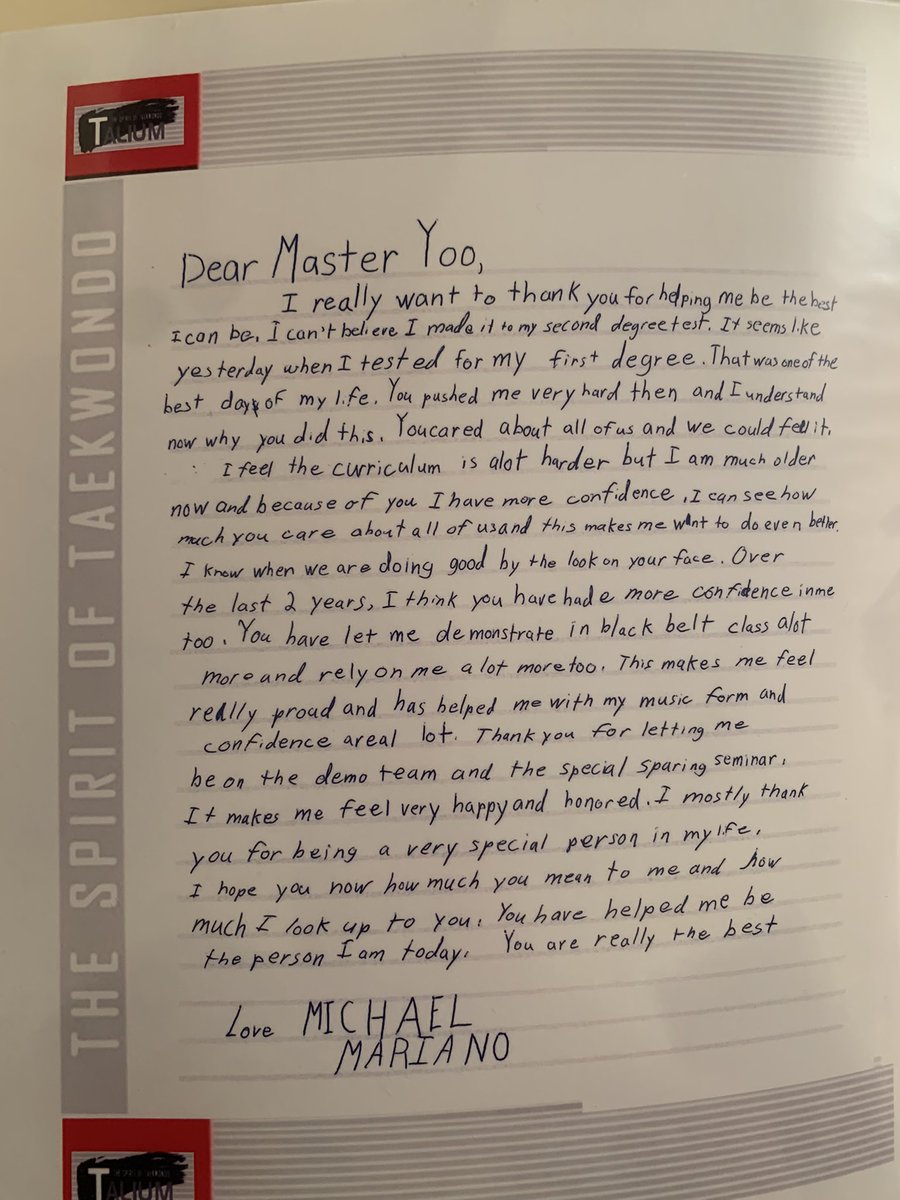 THE SPIRIT OF TAEKWONDO
TALIUM
Dear Master Yoo,
I really want to thank you for helping me be the best
I can be. I can't believe I made it to my second degree test. It seems like
yesterday when I tested for my first degree. That was one of the
best days of my life. You pushed me very hard then and I understand
now why you did this. You cared about all of us and we could feel it.
I feel the curriculum is alot harder but I am much older
now and because of you I have more confidence. I can see how
much you care about all of us and this makes me want to do even better.
I know when we are doing good by the look on your face. Over
the last 2 years, I think you have had e more confidence in me
too. You have let me demonstrate in black belt class alot
more and rely on me a lot more too. This makes me feel
really proud and has helped me with my music form and
confidence a real lot. Thank you for letting me
be on the demo team and the special sparing seminar.
It makes me feel very happy and honored. I mostly thank
you for being a very special person in my life.
I hope you now how much you mean to me and how
much I look up to you. You have helped me be
the person I am today. You are really the best
Love MICHAEL
MARIANO
TALIUM